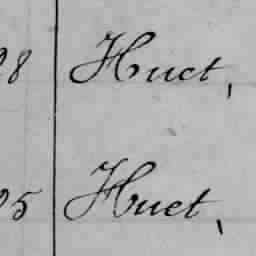 8 Huet,
5 Huet,